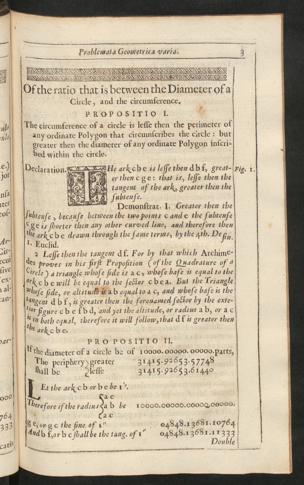 Problemata Geometrica varia. 3
Of the ratio that is between the Diameter of a
Circle, and the circumference.
PROPOSITIO I.
The circumference of a circle is lesse then the perimeter of
any ordinate Polygon that circumscribes the circle: but
greater then the diameter of any ordinate Polygon inscri-
bed within the circle.
Declaration. THe ark c b e is lesse then d b f, great- Fig. 1.
er then c g e: that is, lesse then the
tangent of the ark, greater then the
subtense.
Demonstrat. 1. Greater then the
subtense, because between the two points c and e the subtense
c g e is shorter then any other curved line, and therefore then
the ark c b e drawn through the same terms, by the 4th. Defin.
1. Euclid.
2 Lesse then the tangent d f. For by that which Archime-
des proves in his first Proposition (of the Quadrature of a
Circle) a triangle whose side is a c, whose base is equal to the
ark c b e will be equal to the sector c b e a. But the Triangle
whose side, or altitude is a b equal to a c, and whose base is the
tangent d b f, is greater then the forenamed sector by the exte-
rior figure c b e f b d, and yet the altitude, or radius a b, or a c
is on both equal, therefore it will follow, that d f is greater then
the ark c b e.
PROPOSITIO II.
If the diameter of a circle be of 10000.00000.00000. parts,
The periphery greater 31415.92653.57748
shall be lesse 31415.92653.61440
LEt the ark c b or b e be 1".
a c
Therefore if the radius a b be 10000.00000.00000.00000.
a e
c g or g e the sine of 1" 04848.13681.10764
And b f, or b c shall be the tang. of 1" 04848.13681.11333
Double